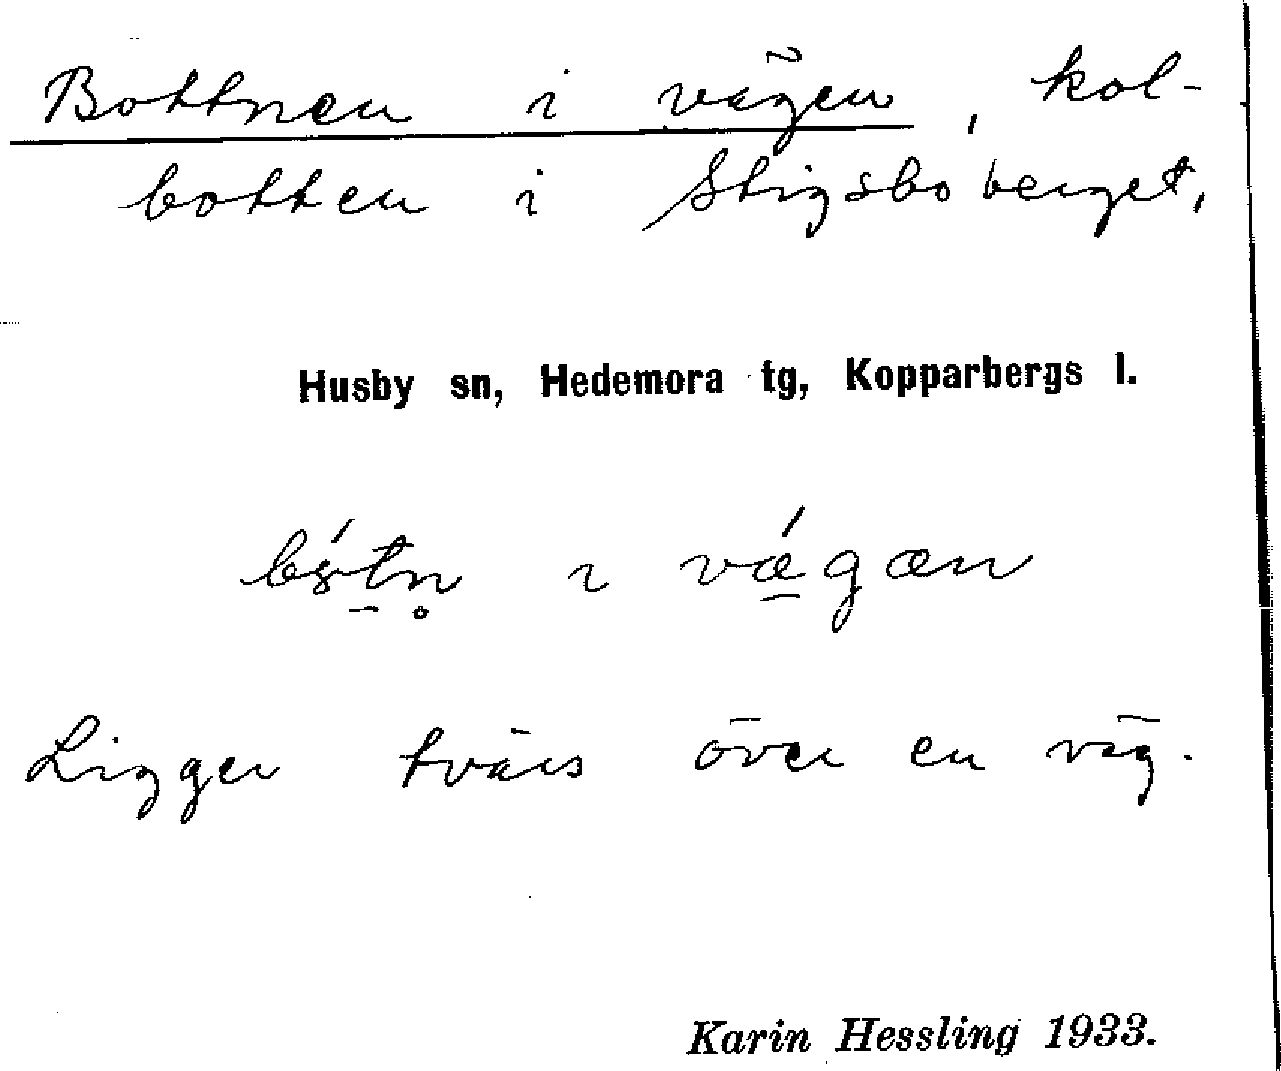 Bottnen i vägen, kol-
botten i Stigsboberget,
Husby sn, Hedemora tg, Kopparbergs l.
ı vǽ̠gæn
Ligger tvärs över en väg.
Karin Hessling 1933.